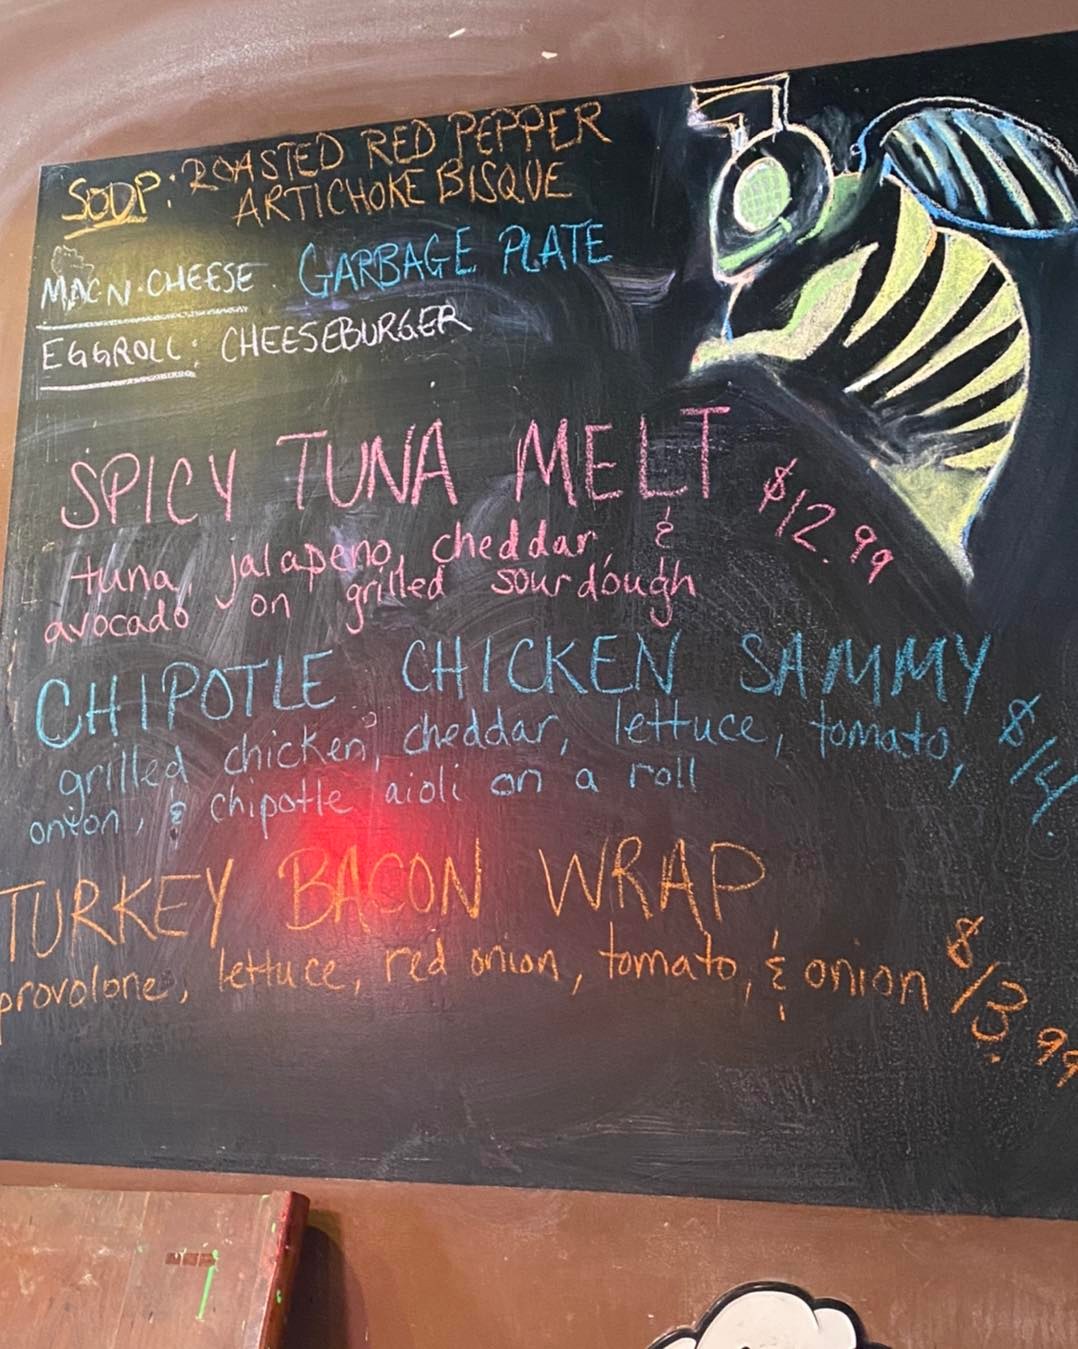 SOUP: ROASTED RED PEPPER
ARTICHOKE BISQUE
MAC N CHEESE: GARBAGE PLATE
EGGROLL: CHEESEBURGER
SPICY TUNA MELT $12.99
tuna, jalapeno, cheddar, &
avocado on grilled sourdough
CHIPOTLE CHICKEN SAMMY $14.
grilled chicken, cheddar, lettuce, tomato,
onion, & chipotle aioli on a roll
TURKEY BACON WRAP
provolone, lettuce, red onion, tomato, & onion $13.99